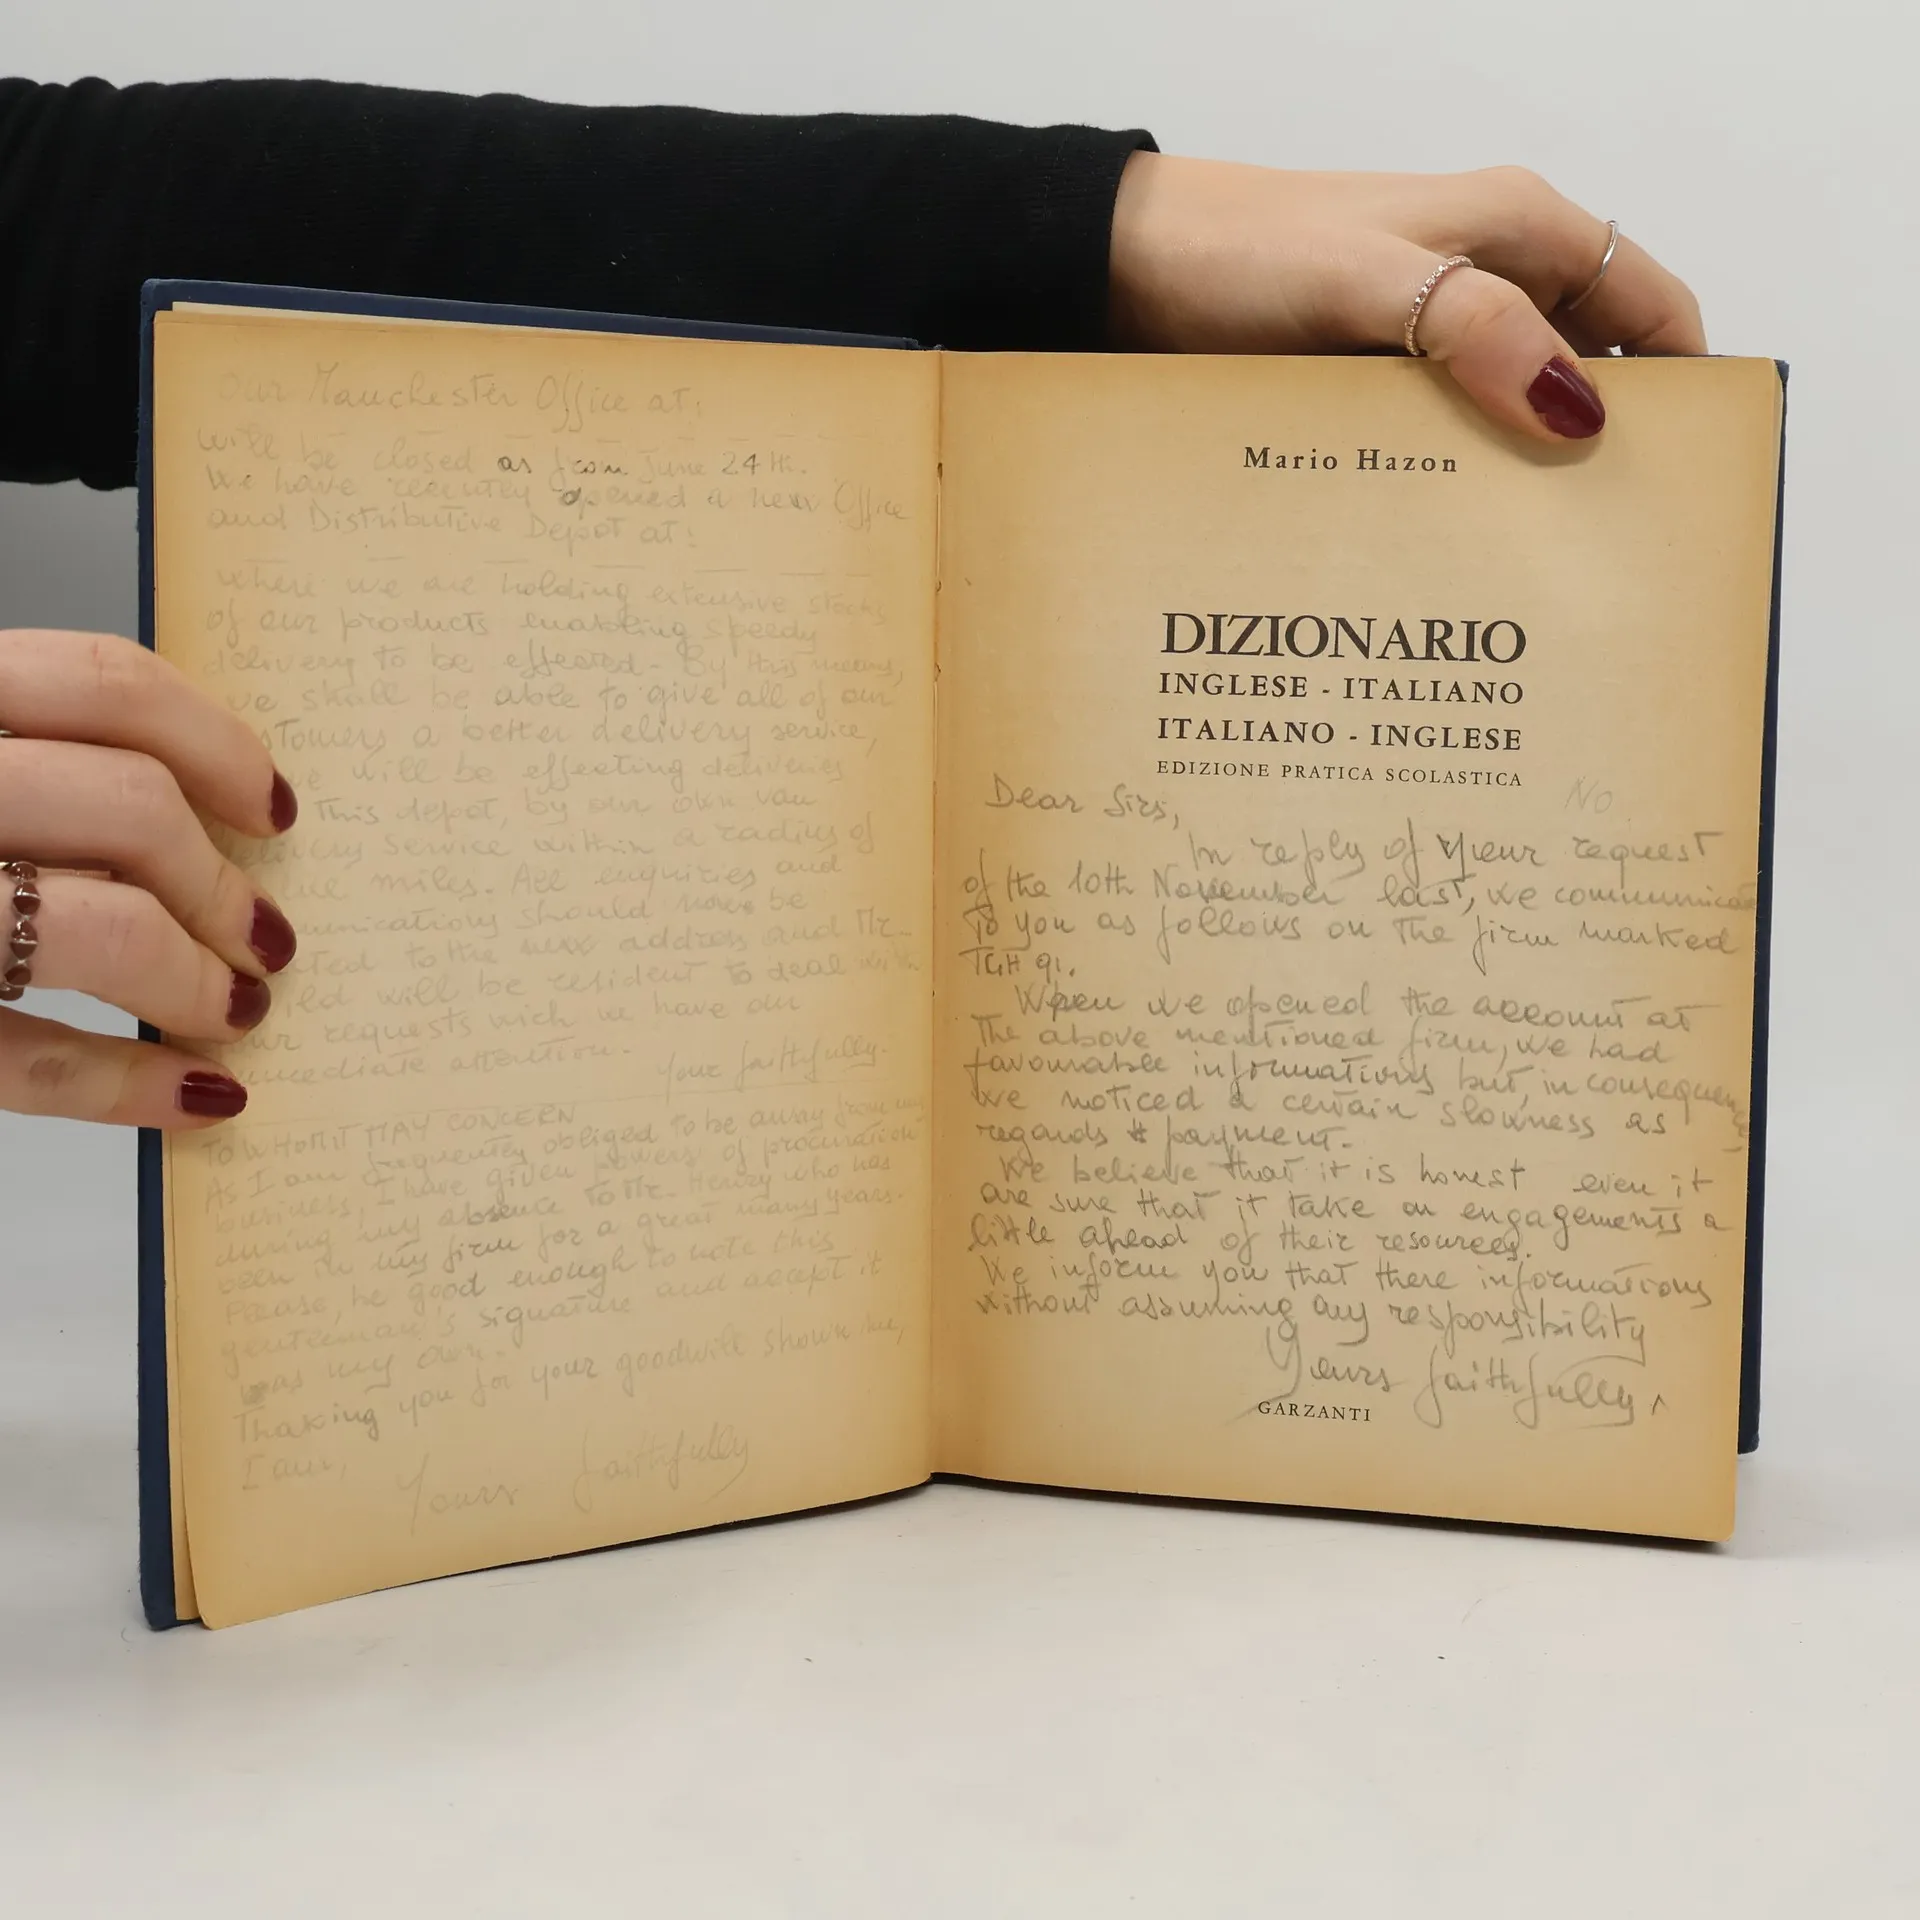 Our Manchester Office at:
will be closed as from June 24th.
We have recently opened a new Office
and Distributive Depot at:
where we are holding extensive stocks
of our products enabling speedy
delivery to be effected - By this means,
we shall be able to give all of our
stomers a better delivery service,
we will be effecting deliveries
This depot, by our own van
delivery service within a radius of
miles. All enquiries and
munications should now be
ted to the new address and Mr.
ild will be resident to deal with
our requests wich we have our
immediate attention.
Your faithfully.
TO WHOM IT MAY CONCERN
As I am frequently obliged to be away from my
business, I have given powers of procuration
during my absence to Mr. Henry who has
been in my firm for a great many years.
Please, be good enough to note this
gentleman's signature and accept it
was my own.
Thaking you for your goodwill shown me,
I am,
Yours faithfully
Mario Hazon
DIZIONARIO
INGLESE - ITALIANO
ITALIANO - INGLESE
EDIZIONE PRATICA SCOLASTICA
NO
Dear Sirs,
In reply of Your request
of the 10th November last, we communicate
To you as follows on the firm marked
TGH 91.
When we opened the account at
The above mentioned firm, we had
favourable informations but, in consequence,
we noticed a certain slowness as
regards payment.
We believe that it is honest even it
are sure that it take on engagements a
little ahead of their resources.
We inform you that there informations
without assuming any responsibility
Yours faithfully
GARZANTI